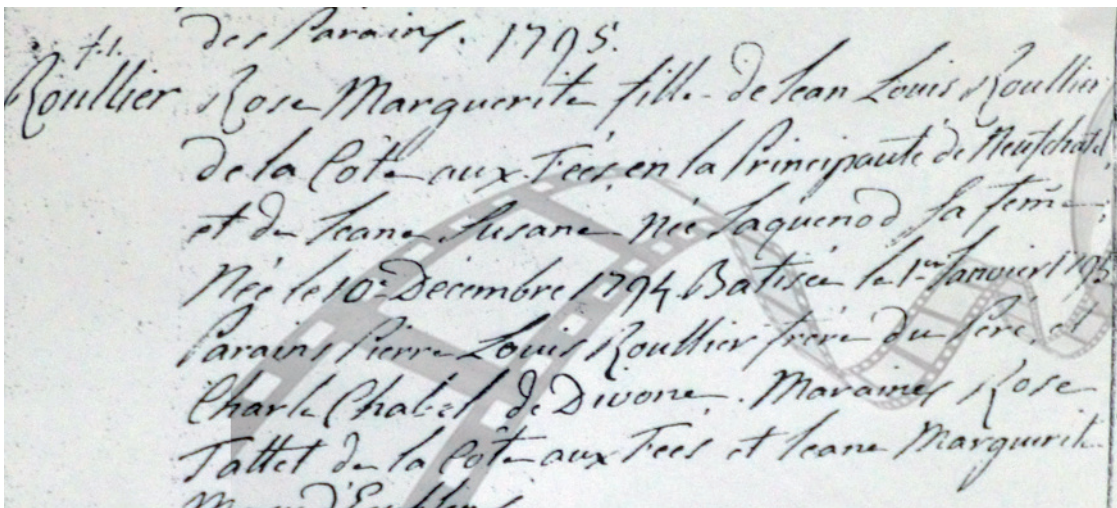 des Parains. 1795.
f.1.
Roullier Rose Marguerite fille de Jean Louis Roullier
de la Côte aux Fées en la Principauté de Neufchatel
et de Jeane Susane née Jaquenod sa feme
Née le 10e Décembre 1794. Batisée le 1er Janvier 1795
Parains Pierre Louis Roullier frère du Père, et
Charle Chabel de Divone. Maraines Rose
Tattet de la Côte aux Fées et Jeane Marguerite